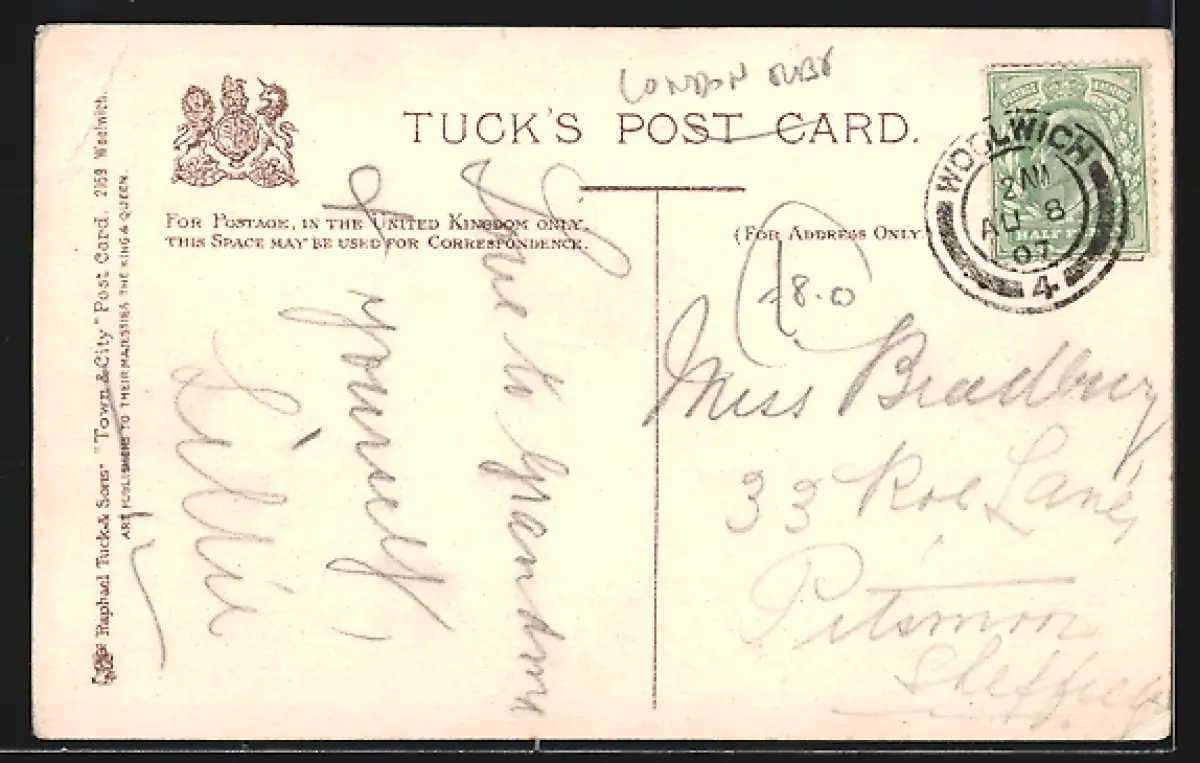 LONDON SUBS
TUCK'S POST CARD.
FOR POSTAGE, IN THE UNITED KINGDOM ONLY,
THIS SPACE MAY BE USED FOR CORRESPONDENCE.
(FOR ADDRESS ONLY.
WOOLWICH
2 AM
AU 8
07
4
HALF PENNY
Raphael Tuck & Sons' "Town & City" Post Card. 2159 Woolwich.
ART PUBLISHERS TO THEIR MAJESTIES THE KING & QUEEN.
Love to Grandma
& yourself
Lillie
8.0
Miss Bradbury
33 Roe Lane,
Pitsmoor
Sheffield